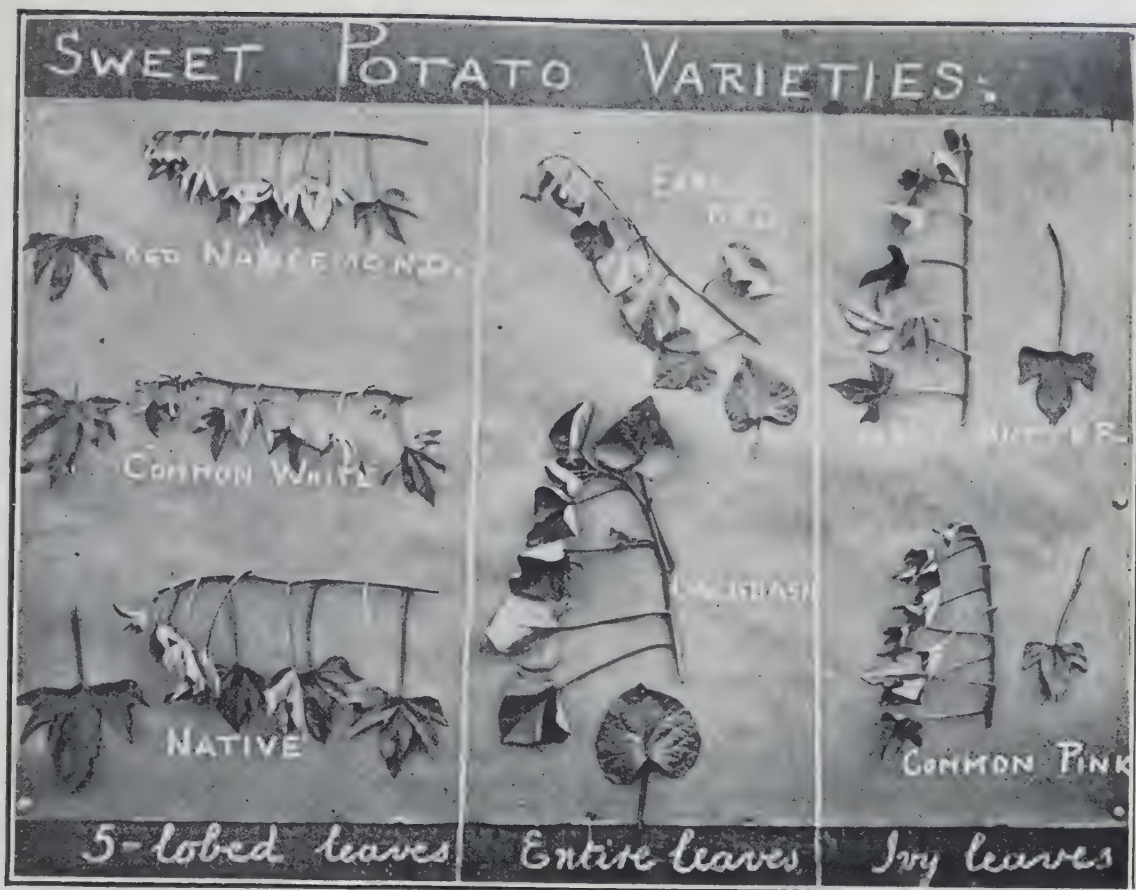 SWEET POTATO VARIETIES:
RED NANSEMOND.
COMMON WHITE
NATIVE
RED
CALABASH
COMMON PINK
5-lobed leaves
Entire leaves
Ivy leaves